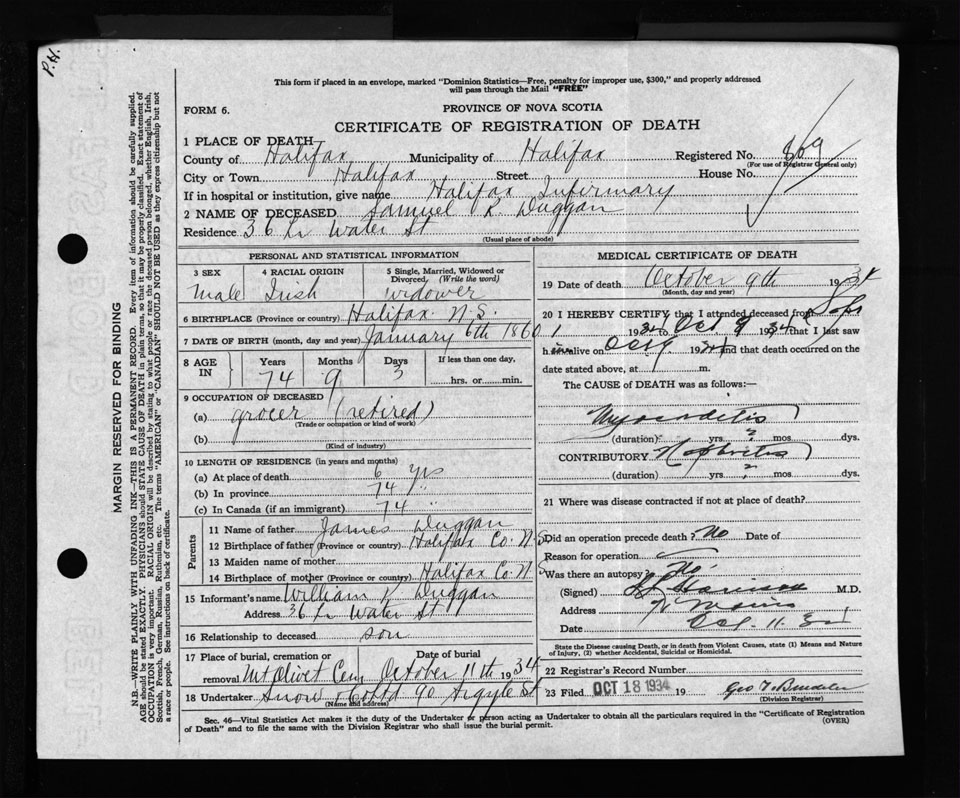 P.H.
This form if placed in an envelope, marked "Dominion Statistics—Free, penalty for improper use, $300," and properly addressed
will pass through the Mail "FREE"
FORM 6.
PROVINCE OF NOVA SCOTIA
CERTIFICATE OF REGISTRATION OF DEATH
1 PLACE OF DEATH
County of Halifax Municipality of Halifax Registered No.
(For use of Registrar General only)
City or Town Halifax Street House No.
If in hospital or institution, give name Halifax Infirmary
2 NAME OF DECEASED Samuel R. Duggan
Residence 36 Lr Water St
(Usual place of abode)
PERSONAL AND STATISTICAL INFORMATION
3 SEX 4 RACIAL ORIGIN 5 Single, Married, Widowed or
Divorced, (Write the word)
Male Irish widower
6 BIRTHPLACE (Province or country) Halifax N.S.
7 DATE OF BIRTH (month, day and year) January 6th 1860
8 AGE IN Years Months Days If less than one day,
74 9 3 hrs. or min.
9 OCCUPATION OF DECEASED
(a) grocer (retired)
(Trade or occupation or kind of work)
(b)
(Kind of industry)
10 LENGTH OF RESIDENCE (in years and months)
(a) At place of death 6 yrs
(b) In province 74 "
(c) In Canada (if an immigrant) 74 "
Parents
11 Name of father James Duggan
12 Birthplace of father (Province or country) Halifax Co. N.S
13 Maiden name of mother
14 Birthplace of mother (Province or country) Halifax Co. N.S
15 Informant's name William K Duggan
Address 36 Lr Water St
16 Relationship to deceased son
17 Place of burial, cremation or Date of burial
removal Mt Olivet Cem October 11th 1934
18 Undertaker Snow & Co Ltd 90 Argyle St
(Name and address)
MEDICAL CERTIFICATE OF DEATH
19 Date of death October 9th 1934
(Month, day and year)
20 I HEREBY CERTIFY that I attended deceased from Sept
1 1934 to Oct 9 1934 that I last saw
h im alive on Oct 9 1934 and that death occurred on the
date stated above, at m.
The CAUSE of DEATH was as follows:—
Myocarditis
(duration) yrs. ? mos dys.
CONTRIBUTORY Nephritis
(duration) yrs. ? mos dys.
21 Where was disease contracted if not at place of death?
Did an operation precede death? No Date of
Reason for operation
Was there an autopsy? No.
(Signed) M.D.
Address
Date Oct. 11. 34
State the Disease causing Death, or in death from Violent Causes, state (1) Means and Nature
of Injury, (2) whether Accidental, Suicidal or Homicidal.
22 Registrar's Record Number
23 Filed OCT 18 1934 19
(Division Registrar)
Sec. 46—Vital Statistics Act makes it the duty of the Undertaker or person acting as Undertaker to obtain all the particulars required in the "Certificate of Registration
of Death" and to file the same with the Division Registrar who shall issue the burial permit. (OVER)
MARGIN RESERVED FOR BINDING
N.B.—WRITE PLAINLY WITH UNFADING INK—THIS IS A PERMANENT RECORD. Every item of information should be carefully supplied.
AGE should be stated EXACTLY. PHYSICIANS should STATE CAUSE OF DEATH in plain terms, so that it may be properly classified. Exact statement of
OCCUPATION is very important. RACIAL ORIGIN will be described by stating to what people or race the deceased person belonged, whether English, Irish,
Scottish, French, German, Russian, Ruthenian, etc. The terms "AMERICAN" or "CANADIAN" SHOULD NOT BE USED as they express citizenship but not
a race or people. See instructions on back of certificate.